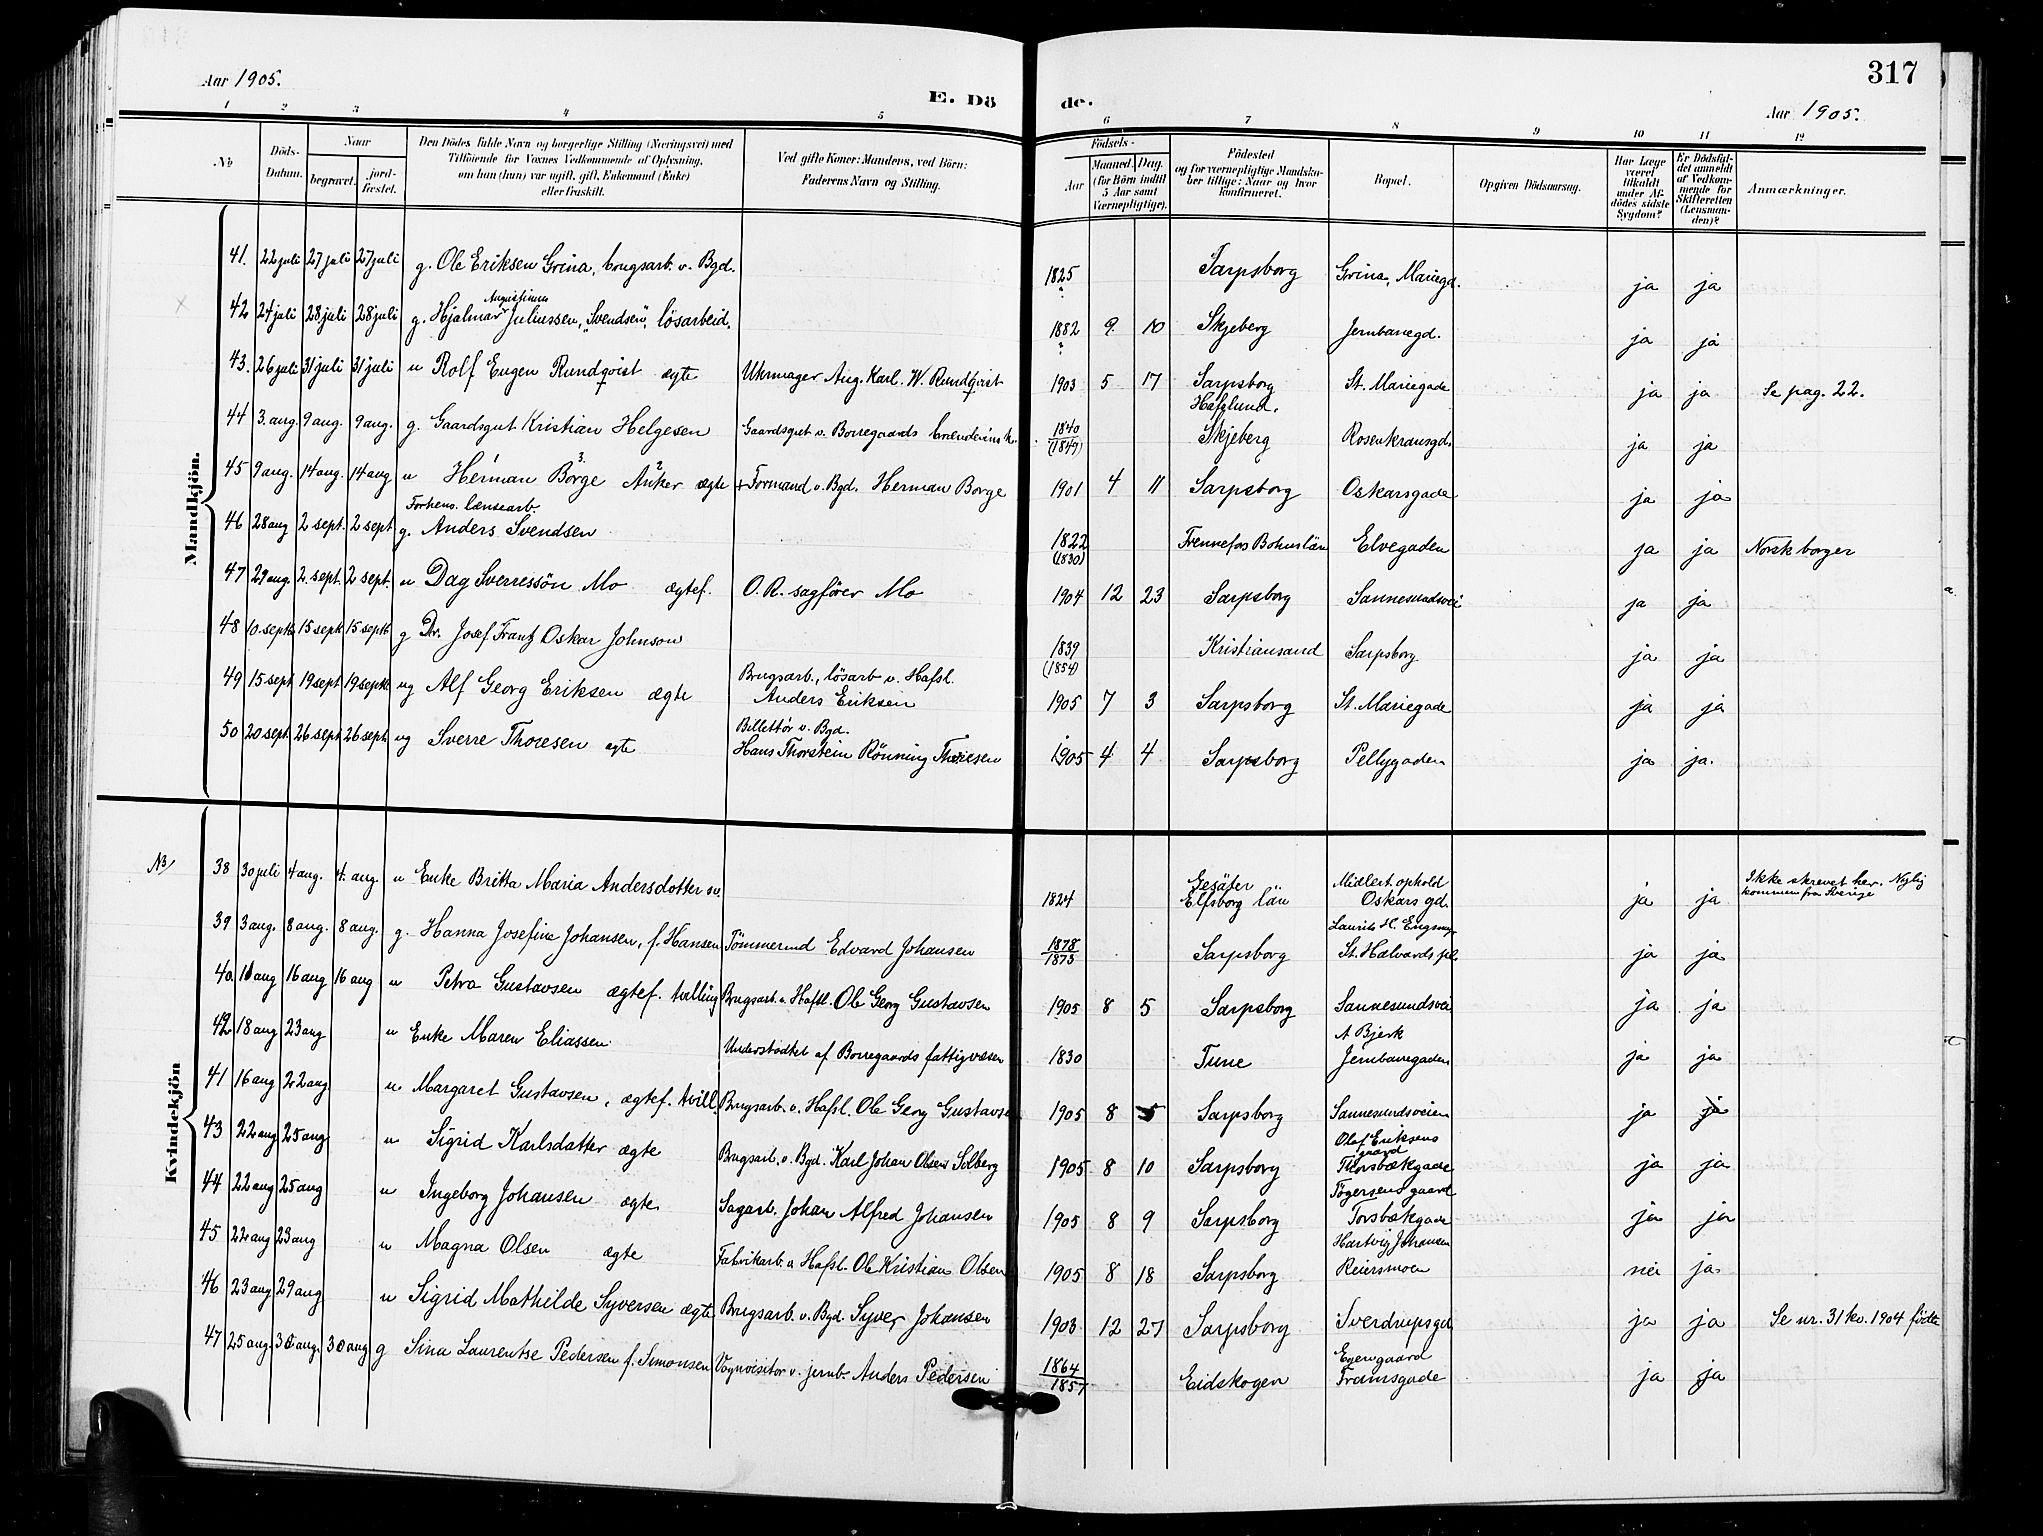 317
Aar 1905.
E. Dö
de.
Aar 1905.
1 2 3 4 5 6 7 8 9 10 11 12
No
Döds-
Datum.
Naar
begravet.
jord-
fæstet.
Den Dödes fulde Navn og borgerlige Stilling (Næringsvei) med
Tilföiende for Voxnes Vedkommende af Oplysning,
om han (hun) var ugift, gift, Enkemand (Enke)
eller fraskilt.
Ved gifte Koner: Mandens, ved Börn:
Faderens Navn og Stilling.
Födsels-
Aar
Maaned. Dag.
(for Börn indtil
5 Aar samt
Værnepligtige).
Födested
og for værnepligtige Mandska-
ber tillige: Naar og hvor
konfirmeret.
Bopæl.
Opgiven Dödsaarsag.
Har Læge
været
tilkaldt
under Af-
dödes sidste
Sygdom?
Er Dödsfal-
det anmeldt
af Vedkom-
mende for
Skifteretten
(Lensman-
den)?
Anmærkninger.
Mandkjön.
41. 22 juli 27 juli 27 juli g. Ole Eriksen Grina, brugsarb. v. Bgd. 1825 Sarpsborg Grina, Mariegd. ja ja
Augustinus
42 24 juli 28 juli 28 juli g. Hjalmar Juliussen, "Svendsen", lösarbeid. 1882 9. 10 Skjeberg Jernbanegd. ja ja
43. 26 juli 31 juli 31 juli u Rolf Eugen Rundqvist ægte Uhrmager Aug. Karl. W. Rundqvist 1903 5 17 Sarpsborg St. Mariegade ja ja Se pag. 22.
Hafslund.
44 3. aug. 9 aug. 9 aug. g. Gaardsgut Kristian Helgesen Gaardsgut v. Borregaards 1840 (1849) Skjeberg Rosenkransgd. ja ja
45 9 aug. 14 aug. 14 aug u Herman Borge Anker ægte + Formand v. Bgd. Herman Borge 1901 4 11 Sarpsborg Oskarsgade ja ja
Forhens. lænsearb.
46 28 aug 2 sept. 2 sept g. Anders Svendsen 1822 (1830) Frennefos Bohuslän Elvegaden ja ja Norsk borger
47 29 aug. 2. sept. 2 sept. u Dag Sverressön Mo ægtef. O. R. sagförer Mo 1904 12 23 Sarpsborg Sannesundsvei ja ja
48 10. sept. 15 sept 15 sept. g Dr. Josef Frantz Oskar Johnson 1839 (1854) Kristiansand Sarpsborg ja ja
Brugsarb., lösarb v. Hafsl.
49 15 sept 19 sept 19 sept ug Alf Georg Eriksen ægte Anders Eriksen 1905 7 3 Sarpsborg St. Mariegade ja ja
Billettör v. Bgd.
50 20 sept. 26 sept 26 sept. ug Sverre Thoresen ægte Hans Thorstein Rönning Thoresen 1905 4 4 Sarpsborg Pellygaden ja ja.
Kvindekjön
NB
38 30 juli 4 aug. 4. aug. u Enke Britta Maria Andersdotter sv. 1824 Gesäter Elfsborg län Midlert. ophold Oskars gd. ja ja Ikke skrevet her. Nylig
kommen fra Sverige
Laurits H.
39 3 aug. 8 aug. 8 aug. g. Hanna Josefine Johansen, f. Hansen Tömmermd Edvard Johansen 1878 1873 Sarpsborg St. Halvards pl. ja ja
40 11 aug 16 aug 16 aug u Petra Gustavsen ægtef. tvilling Brugsarb. v. Hafsl. Ole Georg Gustavsen 1905 8 5 Sarpsborg Sannesundsvei ja ja
A Bjerk
42 18 aug 23 aug u Enke Maren Eliassen Understödtet af Borregaards fattigvæsen 1830 Tune Jernbanegaden ja ja
41 16 aug 22 aug u Margaret Gustavsen, ægtef. tvill Brugsarb. v. Hafsl. Ole Georg Gustavsen 1905 8 5 Sarpsborg Sannesundsveien ja ja
Olaf Eriksens
gaard
43 22 aug 25 aug u Sigrid Karlsdatter ægte Brugsarb. v. Bgd. Karl Johan Olsen Solberg 1905 8 10 Sarpsborg Thorsbækgade ja ja
Tögersens gaard
44 22 aug 25 aug u Ingeborg Johansen ægte Sagarb. Johan Alfred Johansen 1905 8 9 Sarpsborg Torsbækgade ja ja
Hartvig Johansen
45 22 aug 23 aug u Magna Olsen ægte Fabrikarb. v Hafsl. Ole Kristian Olsen 1905 8 18 Sarpsborg Reiersmoen nei ja
46 23 aug 29 aug u Sigrid Mathilde Syversen ægte Brugsarb. v. Bgd. Syver Johansen 1903 12 27 Sarpsborg Sverdrupsgd ja ja Se nr. 31 kv. 1904 födte
Egengaard
47 25 aug. 30 aug. 30 aug g Sina Laurentse Pedersen f. Simonsen Vognvisitör v. jernb. Anders Pedersen 1864 1857 Eidskogen Framsgade ja ja